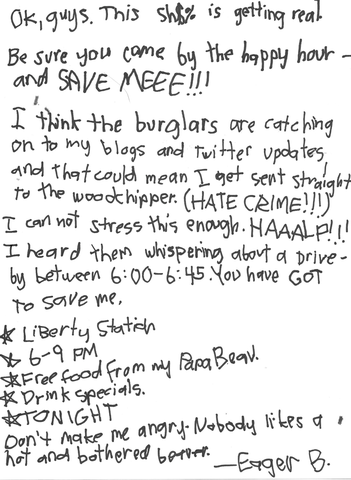 Ok, guys. This sh$% is getting real.
Be sure you come by the happy hour -
and SAVE MEEE!!!
I think the burglars are catching
on to my blogs and twitter updates,
and that could mean I get sent straight
to the woodchipper. (HATE CRIME!!!)
I can not stress this enough. HAAALP!!!
I heard them whispering about a drive-
by between 6:00-6:45. You have GOT
to save me.
☆ Liberty Station
☆ 6-9 PM
☆ Free food from my Papa Beav.
☆ Drink specials.
☆ TONIGHT
Don't make me angry. Nobody likes a
hot and bothered beaver.
—Eager B.